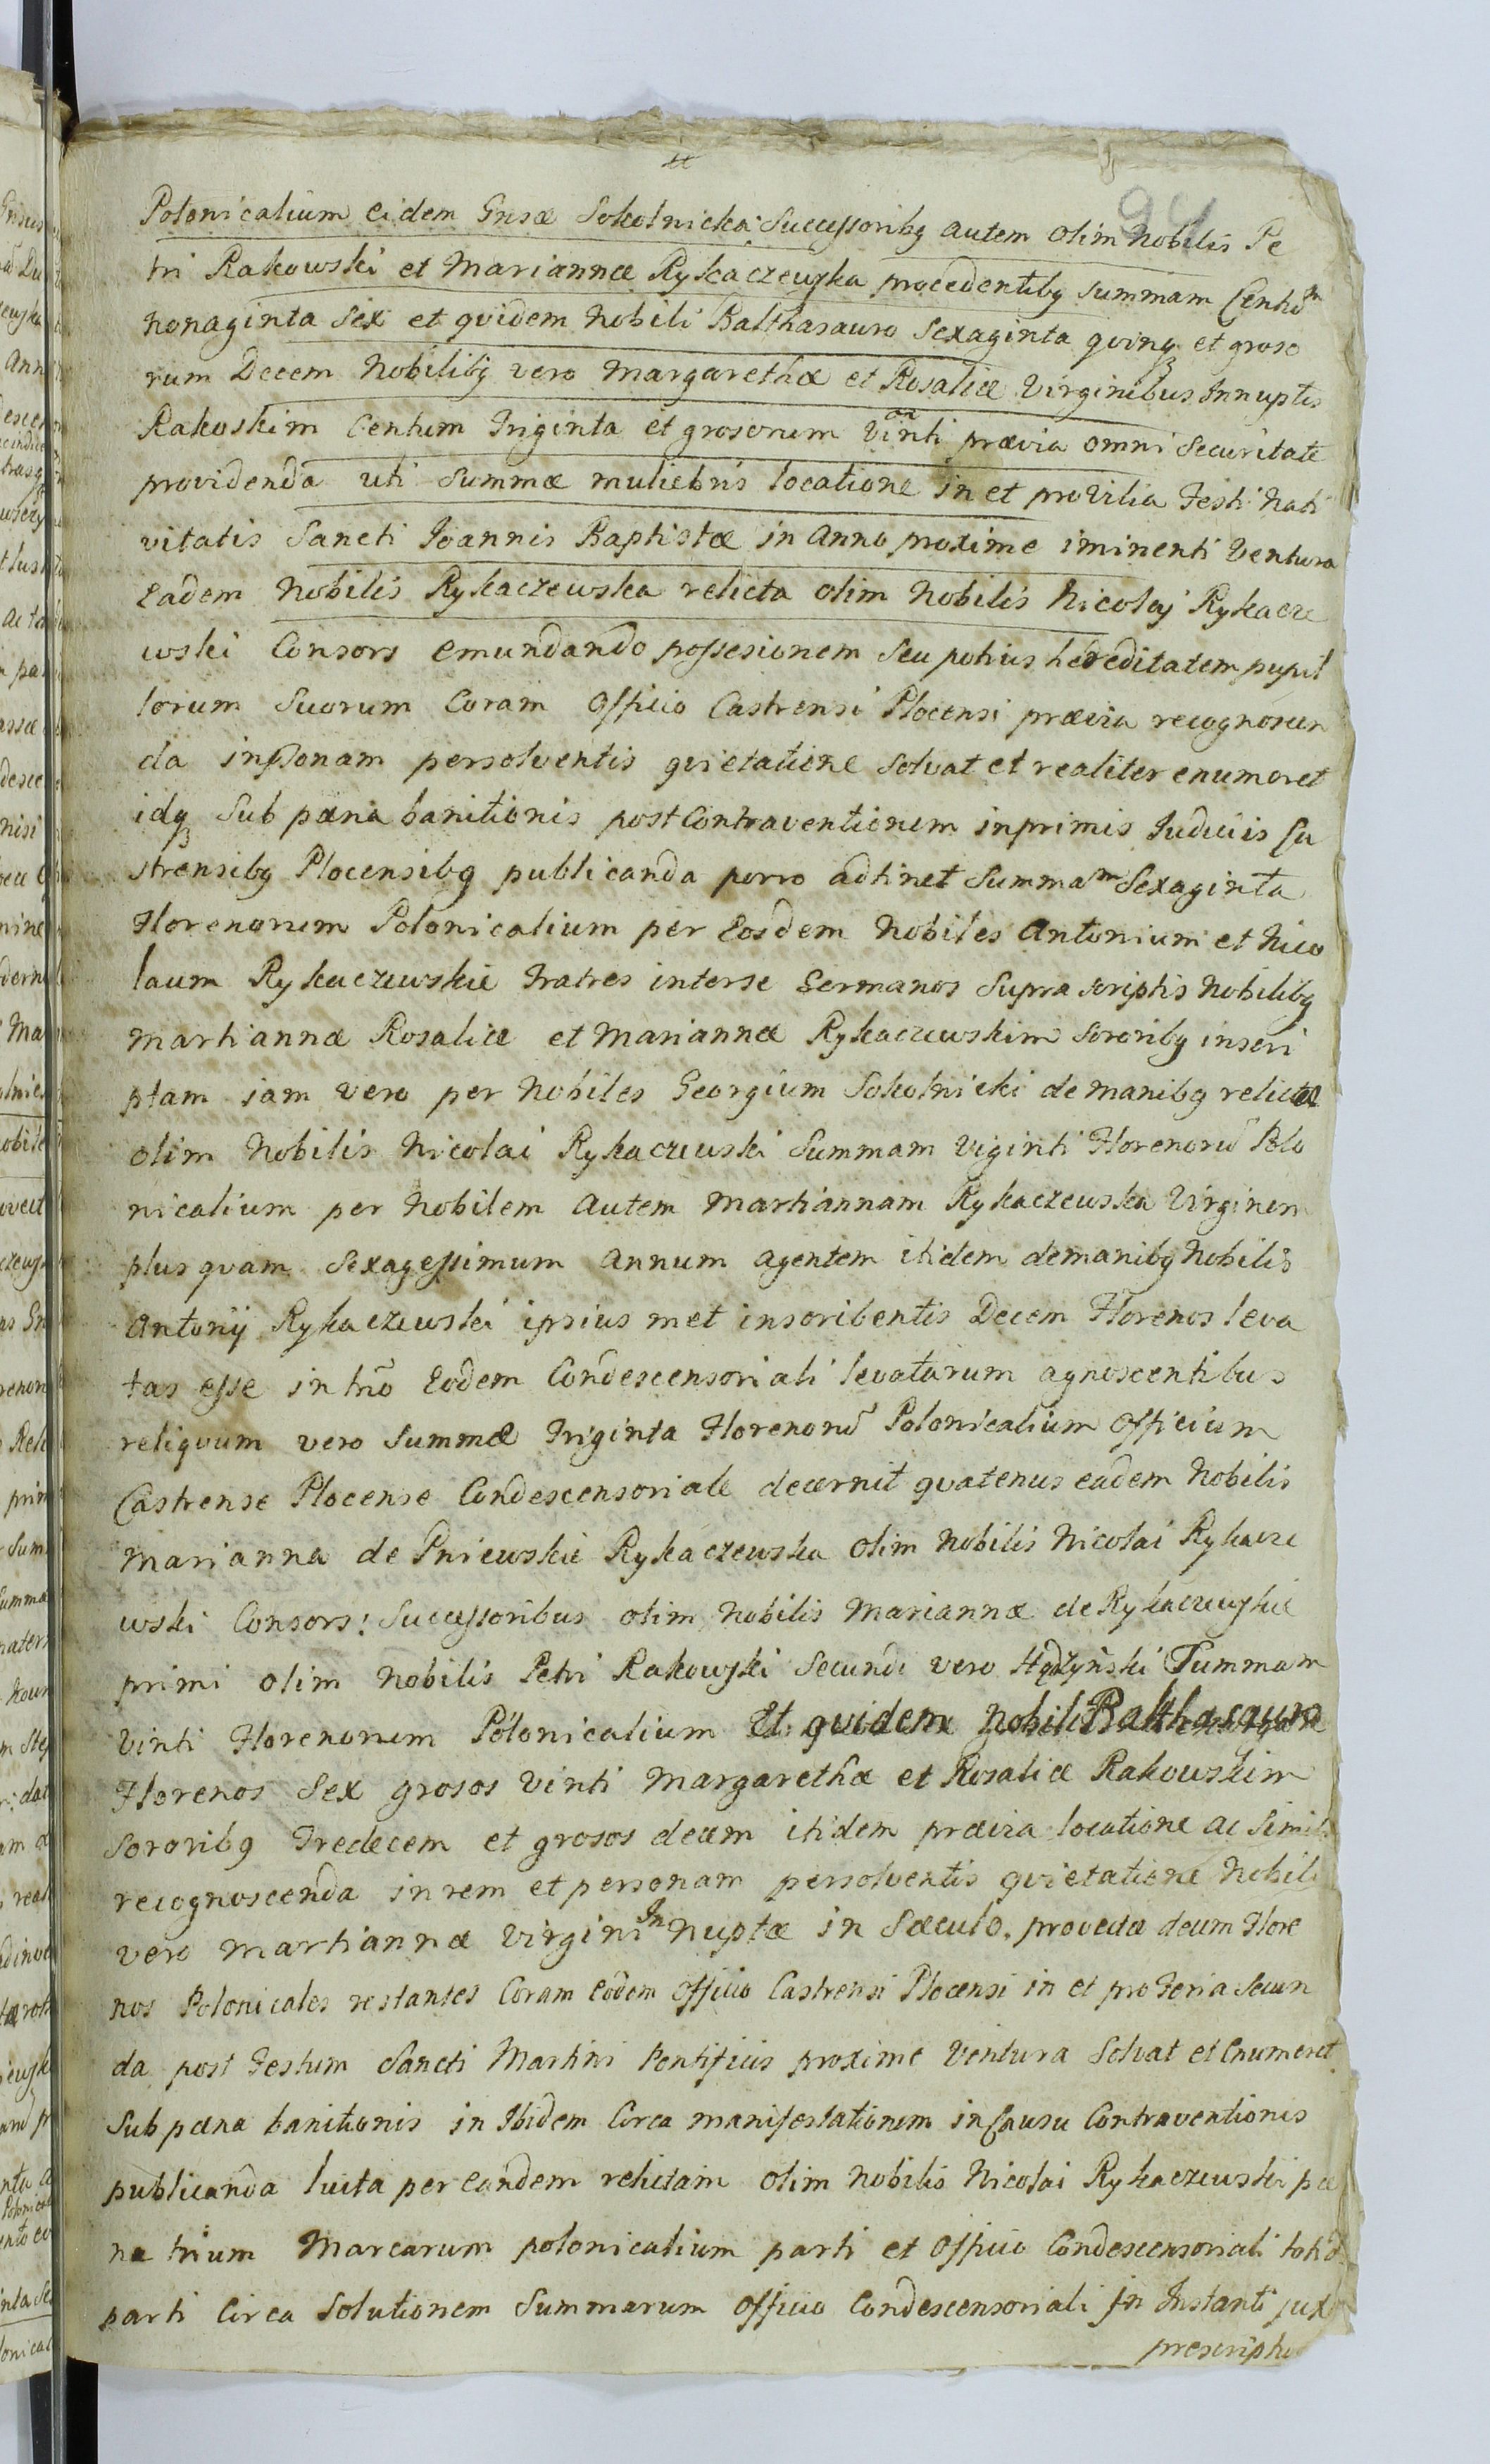 94
Polonicalium eidem Gnsæ Sokolnicka Successoribq autem olim Nobilis Pe
tri Rakowski et Mariannæ Rykaczewska procedentibq summam Centu m
nonaginta Sex et quidem Nobili Balthasauro Sexaginta quinq et groso
rum Decem Nobilibq vero Margarethæ et Rosaliæ Virginibus Innuptis
Rakoskim Centum Triginta et grosorum Vinti prævia omni Securitate
providenda uti Summæ muliebris locatione in et pro Vilia Festi Nati
vitatis Sancti Joannis Baptistæ in Anno proxime iminenti Ventura
Eadem Nobilis Rykaczewska relicta olim Nobilis Nicolaj Rykacze
wski Consors emundando possesionem Seu potius hereditatem pupil
lorum Suorum Coram Officio Castrensi Plocensi prævia recognoscen
da in psonam persolventis quietatione Solvat et realiter enumeret
idq Sub pæna banitionis post Contraventionem in primis Judiciis Ca
strensibq Plocensibq publicanda porro adtinet Summam Sexaginta
Florenorum Polonicalium per Eosdem Nobiles Antonium et Nico
laum Rykaczewskie Fratres interse Germanos Supra scriptis Nobilibq
Martiannæ Rosaliæ et Mariannæ Rykaczewskim Sororibq inscri
ptam iam vero per Nobiles Georgium Sokolnicki de manibq relictæ
olim Nobilis Nicolai Rykaczewski Summam Viginti Florenorũ Polo
nicalium per Nobilem autem Martiannam Rykaczewska Virginem
plus quam Sexagessimum annum agentem itidem de manibq Nobilis
Antonij Rykaczewski ipsius met inscribentis Decem Florenos leva
tas esse in trõ Eodem Condescensoriali levatarum agnoscentibus
reliquum vero Summæ Triginta Florenorũ Polonicalium Officium
Castrense Plocense Condescensoriale decernit quatenus eadem Nobilis
Marianna de Pniewskie Rykaczewska olim Nobilis Nicolai Rykacze
wski Consors: Successoribus olim Nobilis Mariannæ de Rykaczewskie
primi olim Nobilis Petri Rakowski Secundi vero Summam
Vinti Florenorum Polonicalium Et quidem Nobili Balthasauro
Florenos Sex grosos Vinti Margarethæ et Rosaliæ Rakowskim
Sororibq Tredecem et grosos decem itidem prævia locatione ac Simili
recognoscenda in rem et personam persolventis quietatione Nobili
vero Martiannæ Virgini In nuptæ in Sæculo provectæ decem Flore
nos Polonicales restantes Coram eodem Officio Castrensi Plocensi in et pro Feria Secun
da post Festum Sancti Martini Pontificis proxime Ventura Solvat et Enumeret
Sub pæna banitionis in Ibidem Circa manifestationem in Causu Contraventionis
publicanda luita per eandem relictam olim Nobilis Nicolai Rykaczewski pæ
na trium Marcarum polonicalium parti et Officio Condescensoriali totid
parti Circa Solutionem Summarum Officio Condescensoriali in Instanti jux